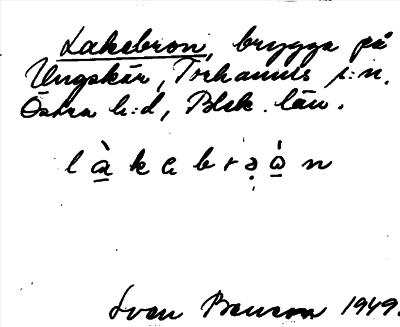 Lakebron, brygga på
Ungskär, Torhamns s:n.
Östra h:d, Blek. län.
l à k e b r ə ò n
Sven Benson 1949.